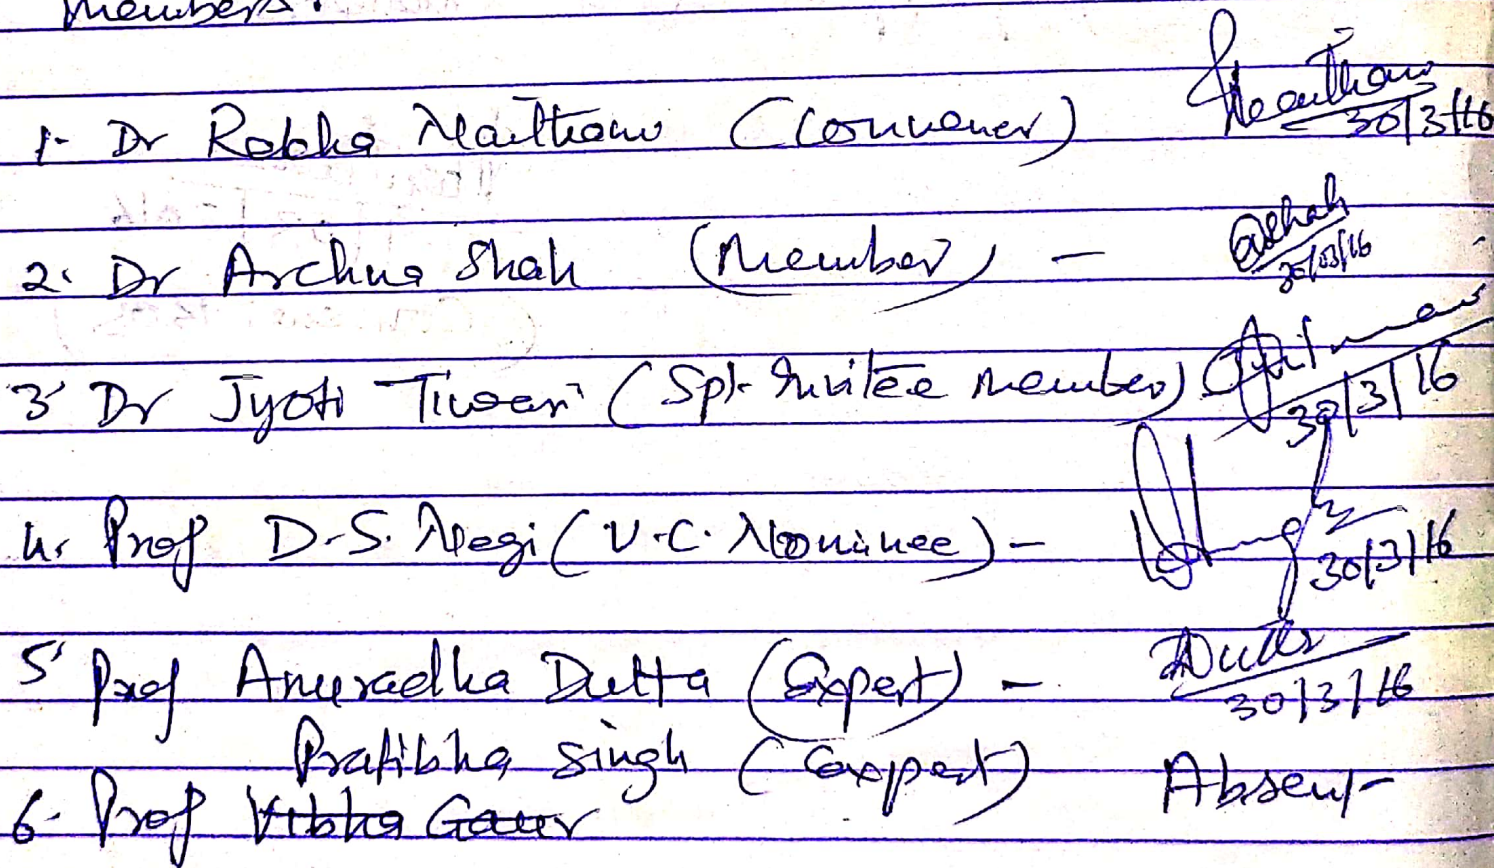 Members.
1- Dr Rekha Naithani (Convener) 30/3/16
2. Dr Archna Shah (Member) - AShah 30/03/16
3. Dr Jyoti Tiwari (Spl- Invitee member) 30/3/16
4. Prof D.S. Negi (V.C. Nominee) - 30/3/16
5. Prof Anuradha Dutta (Expert) - ADutta 30/3/16
Pratibha Singh (Expert) Absent
6- Prof Vibha Gaur